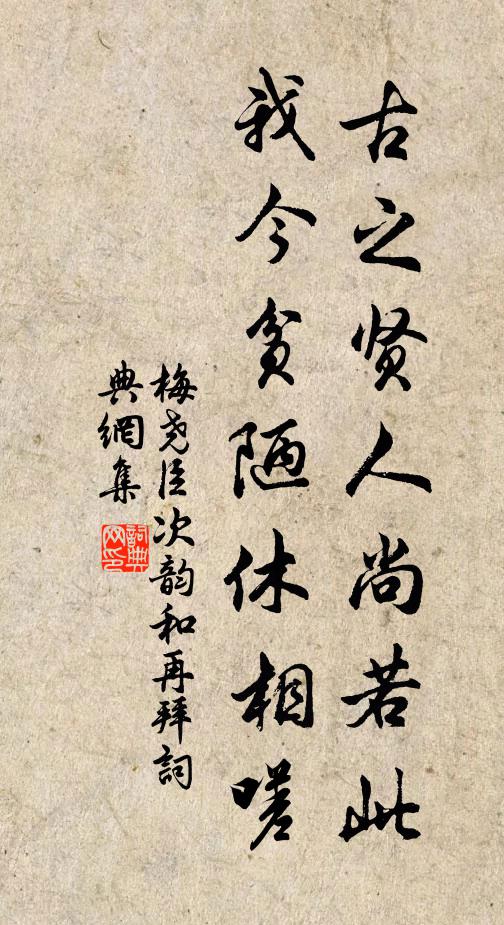 古之贤人尚若此
我今贫陋休相嗟
梅尧臣次韵和再拜詞
典網集
詞典网印